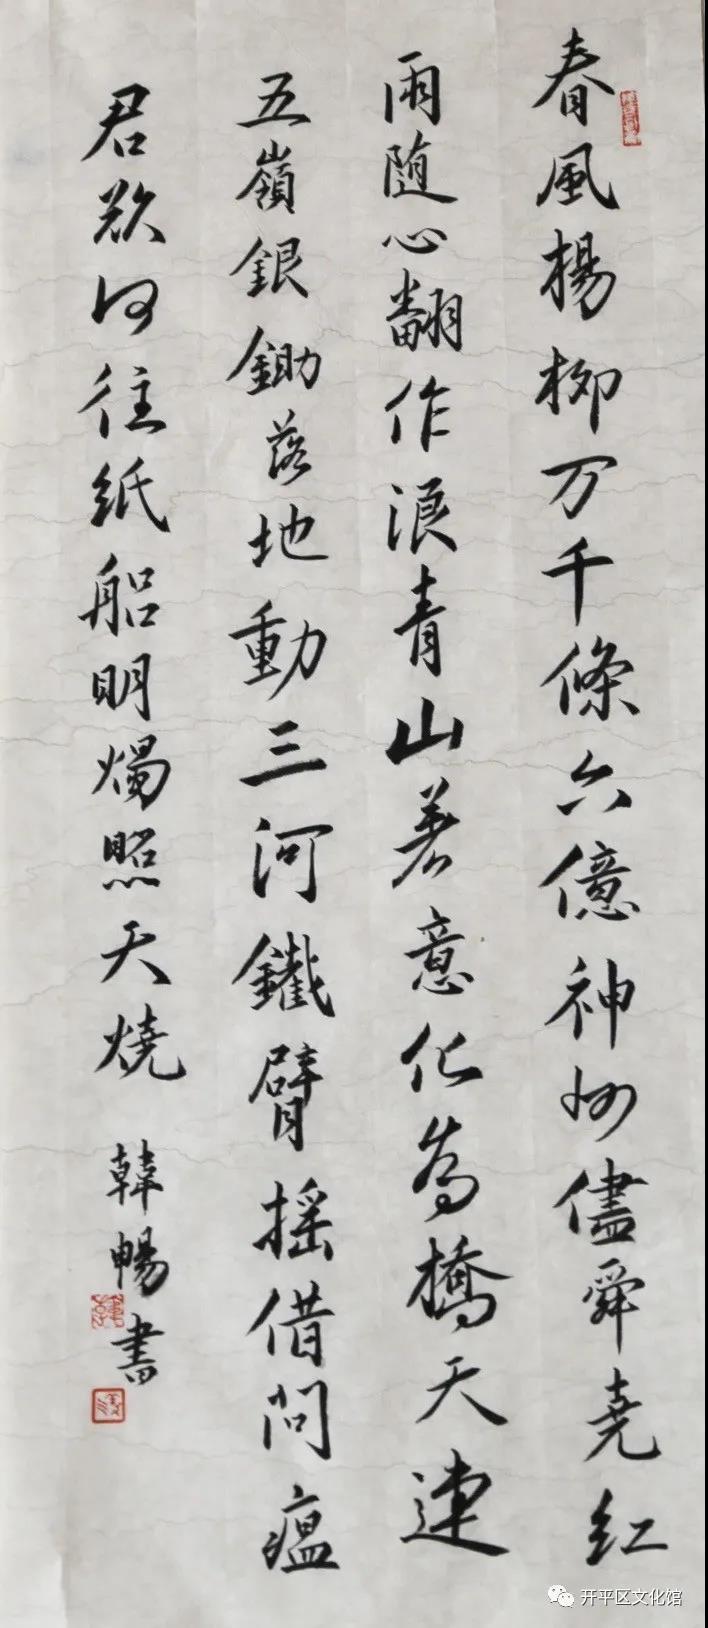 春風楊柳万千條六億神州儘舜堯红
雨随心翻作浪青山着意化為橋天連
五嶺銀鋤落地動三河鐵臂摇借问瘟
君欲何往紙船明燭照天燒
韓暢書
开平区文化馆